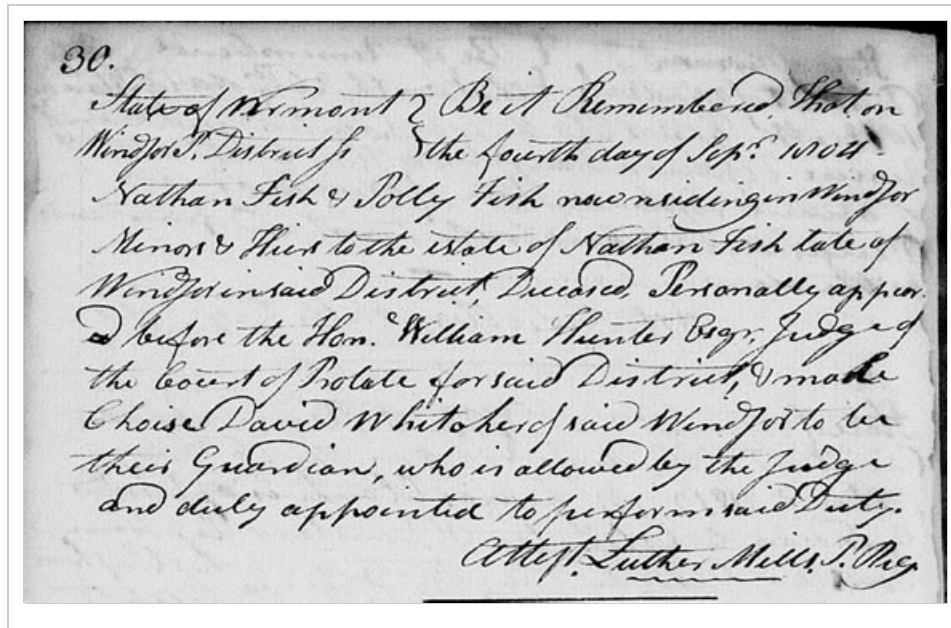 30.
State of Vermont } Be it Remembered, That on
Windsor Pr. District ss } the fourth day of Sepr. 1804
Nathan Fish & Polly Fish now residing in Windsor
Minors & Hiers to the estate of Nathan Fish late of
Windsor in said District, Deceased, Personally appear-
ed before the Hon.e William Hunter Esqr. Judge of
the Court of Probate for said District, & made
Choise David Whitcher of said Windsor to be
their Guardian, who is allowed by the Judge
and duly appointed to perform said Duty.
Attest Luther Mills, P. Reg.